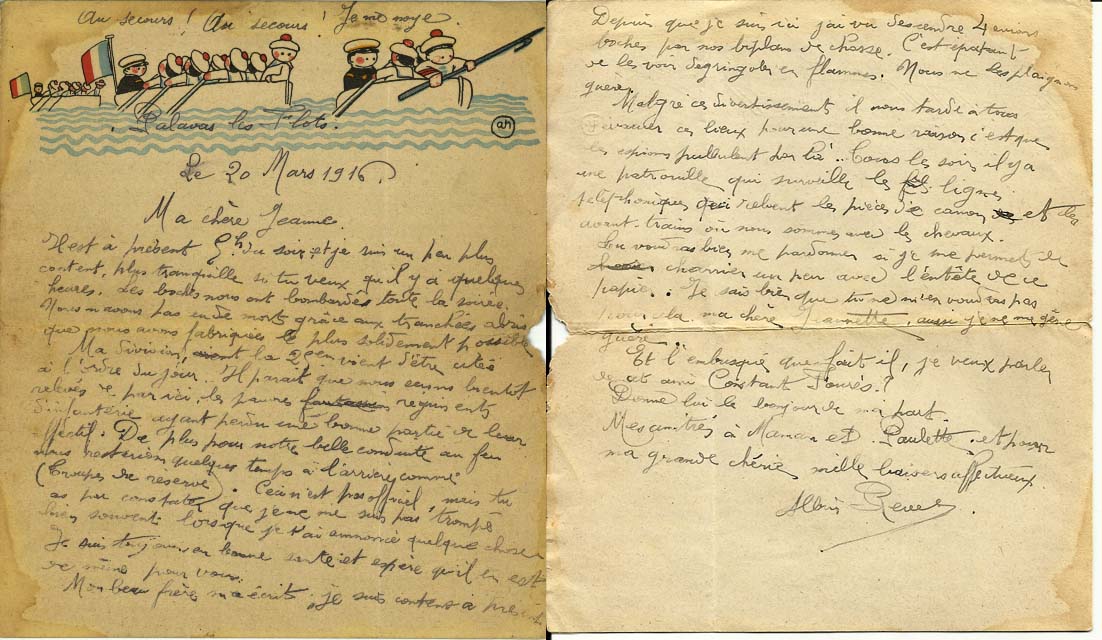 Au secours ! Au secours ! Je me noye.
Palavas les Flots.
ah
Le 20 Mars 1916.
Ma chère Jeanne.
Il est à présent 5h du soir et je suis un peu plus
content, plus tranquille si tu veux qu'il y a quelques
heures. Les boches nous ont bombardés toute la soirée.
Nous n'avons pas eu de morts grâce aux tranchées abris
que nous avons fabriquées le plus solidement possible
Ma division, la vient d'être citée
à l'ordre du jour. Il parait que nous serons bientôt
relevés par ici, les pauvres regiments
d'infanterie ayant perdu une bonne partie de leur
effectif. De plus pour notre belle conduite au feu
nous resterions quelques temps à l'arrière comme
(Troupes de reserve). Ceci n'est pas officiel, mais tu
as pu constater que je ne me suis pas trompé
bien souvent lorsque je t'ai annoncé quelque chose
Je suis toujours en bonne santé et espère qu'il en est
de même pour vous.
Mon beau frère m'a écrit, je suis content à
Depuis que je suis ici j'ai vu descendre 4 avions
boches par nos biplans de chasse. C'est epatant
de les voir degringoler en flammes. Nous ne les plaignons
guère.
Malgré ces divertissements il nous tarde à tous
d'évacuer ces lieux pour une bonne raison c'est que
les espions pullulent par là.. Tous les soirs il y a
une patrouille qui surveille les lignes
telephoniques qui relient les pièces de canon et des
avant-trains où nous sommes avec les chevaux.
Tu voudras bien me pardonner si je me permets de
charrier un peu avec l'entête de ce
papier. Je sais bien que tu ne m'en voudras pas
pour cela ma chère Jeannette, aussi je ne me gêne
guère.
Et l'embusqué que fait-il, je veux parler
de cet ami Constant Fourés ?
Donne lui le bonjour de ma part.
Mes amitiés à Maman et Paulette, et pour
ma grande chérie mille baisers affectueux
Albin